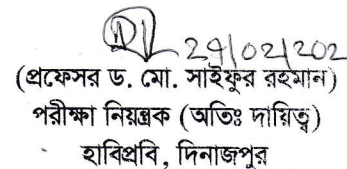 29/02/202
(প্রফেসর ড. মো. সাইফুর রহমান)
পরীক্ষা নিয়ন্ত্রক (অতিঃ দায়িত্ব)
হাবিপ্রবি, দিনাজপুর